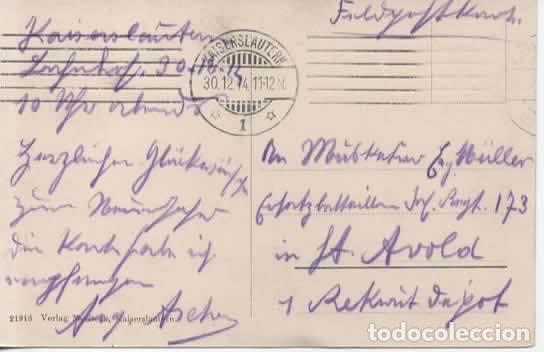 Feldpostkarte.
Kaiserslautern
Bahnhof, 30.12.14
10 Uhr abends
KAISERSLAUTERN
30.12.14 11-12 N.
1
Herzlichen Glückwunsch
zum Neuenjahr
die Karte habe ich
empfangen
An Musketier Müller
Ersatzbataillon Inf. Regt. 173
in St. Avold
1 Rekrut depot
21916 Verlag Kaiserslautern
todocoleccion.net